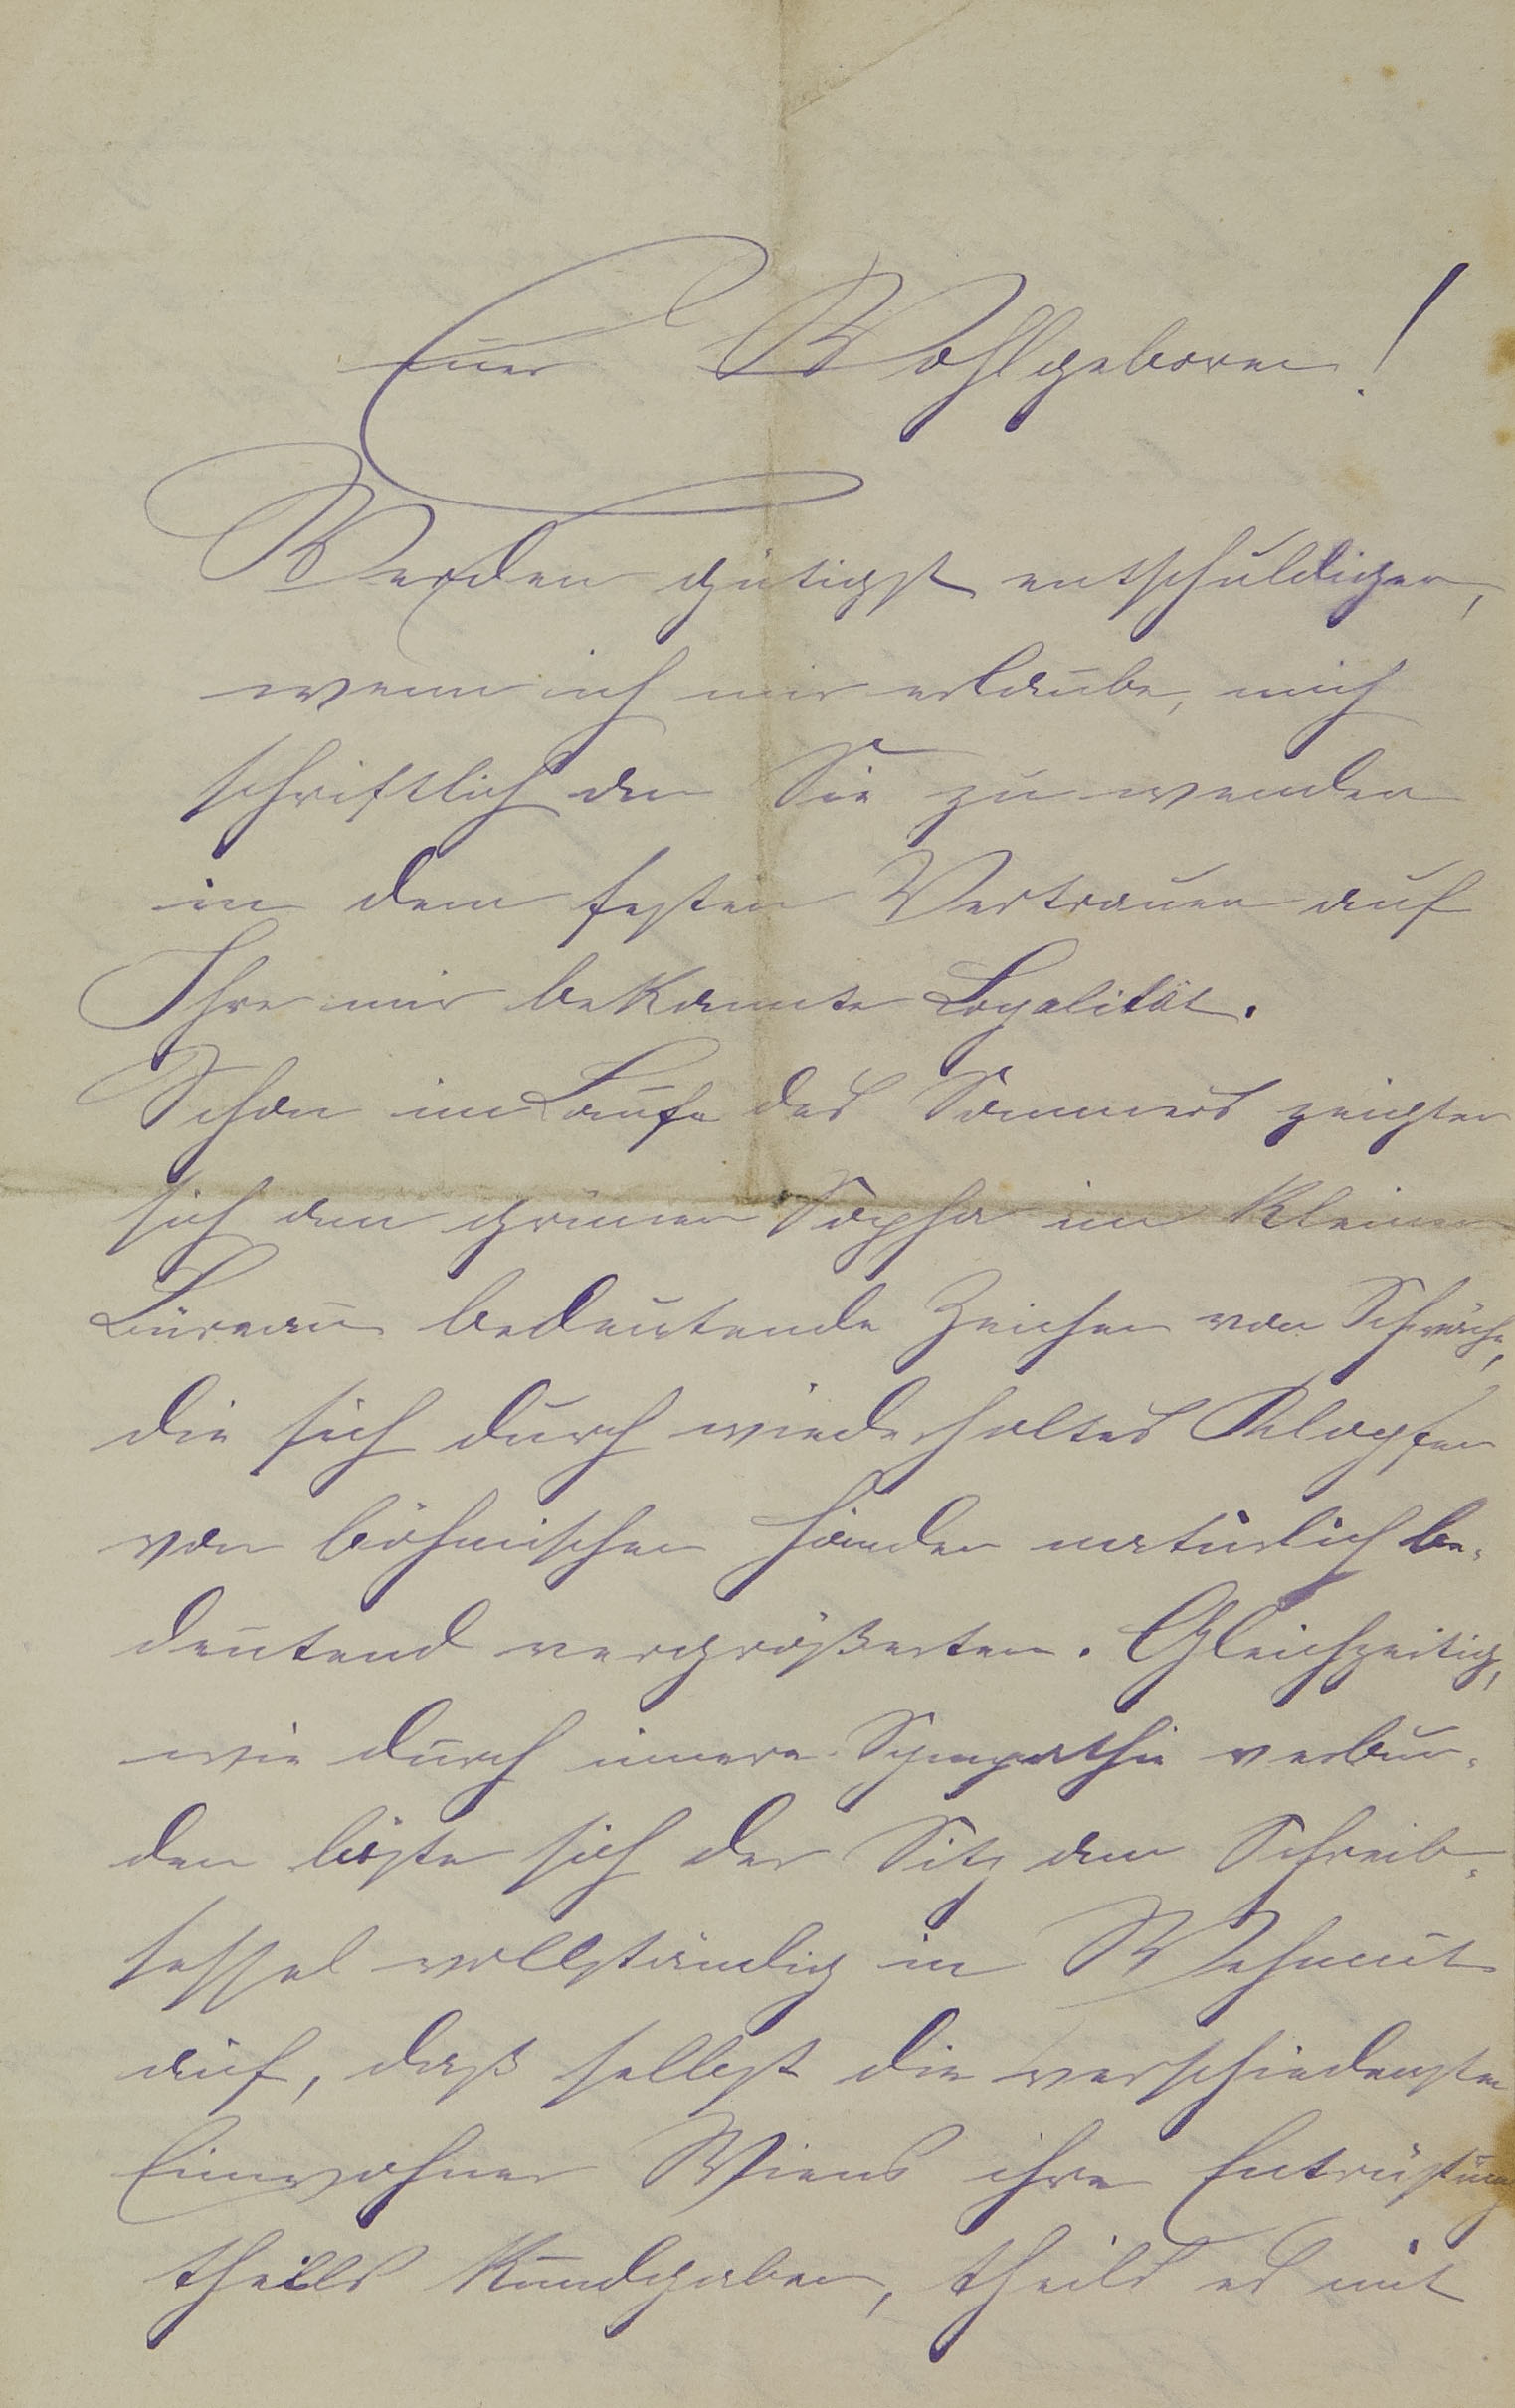 Euer Wohlgeboren!
Werden gütigst entschuldigen,
wenn ich mir erlaube, mich
schriftlich an Sie zu wenden
in dem festen Vertrauen auf
Ihre mir bekannte Loyalität.
Schon im Laufe des Sommers zeigten
sich am grünen Sopha im kleinen
Büreau bedeutende Zeichen von Schwäche,
die sich durch wiederholtes Klopfen
von böhmischen Händen natürlich be-
deutend vergrößerten. Gleichzeitig,
wie durch innere Sympathie verbun-
den löste sich der Sitz am Schreib-
sessel vollständig in Wehmut
auf, daß selbst die verschiedensten
Einwohner Wiens ihre Entrüstung
theils kundgaben, theils es mit